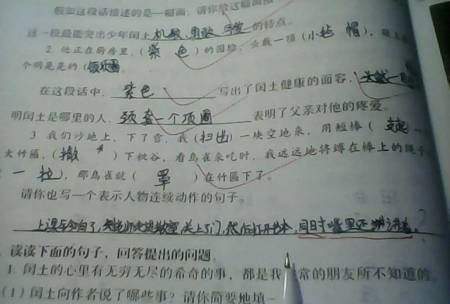 假如这段话描述的是一幅画，请你给这幅画
这一段最能突出少年闰土机敏、勇敢的特点。
2. 他正在厨房里，(紫色)的圆脸，头戴一顶(小毡帽)，颈上
个明晃晃的(银项圈)。
在这段话中，紫色写出了闰土健康的面容，头戴一
明闰土是哪里的人，颈套一个项圈表明了父亲对他的疼爱。
3. 我们沙地上，下了雪，我(扫出)一块空地来，用短棒(支起)
大竹匾，(撒)下秕谷，看鸟雀来吃时，我远远地将缚在棒上的绳子
一拉，那鸟雀就(罩)在竹匾下了。
请你也写一个表示人物连续动作的句子。
上课铃响了，走进教室关上了门，然后打开书本，
读读下面的句子，回答提出的问题。
1. 闰土的心里有无穷无尽的希奇的事，都是我常的朋友所不知道的。
(1) 闰土向作者说了哪些事？请你简要地填一